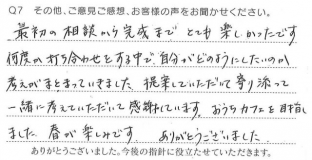 Q7 その他、ご意見ご感想、お客様の声をお聞かせください。
最初の相談から完成まで とても楽しかったです
何度か打ち合わせをする中で、自分がどのようにしたいのか
考えがまとまっていきました。提案していただいて寄り添って
一緒に考えていただいて感謝しています。おうちカフェを目指し
ました。春が楽しみです ありがとうございました。
ありがとうございました。今後の指針に役立たせていただきます。